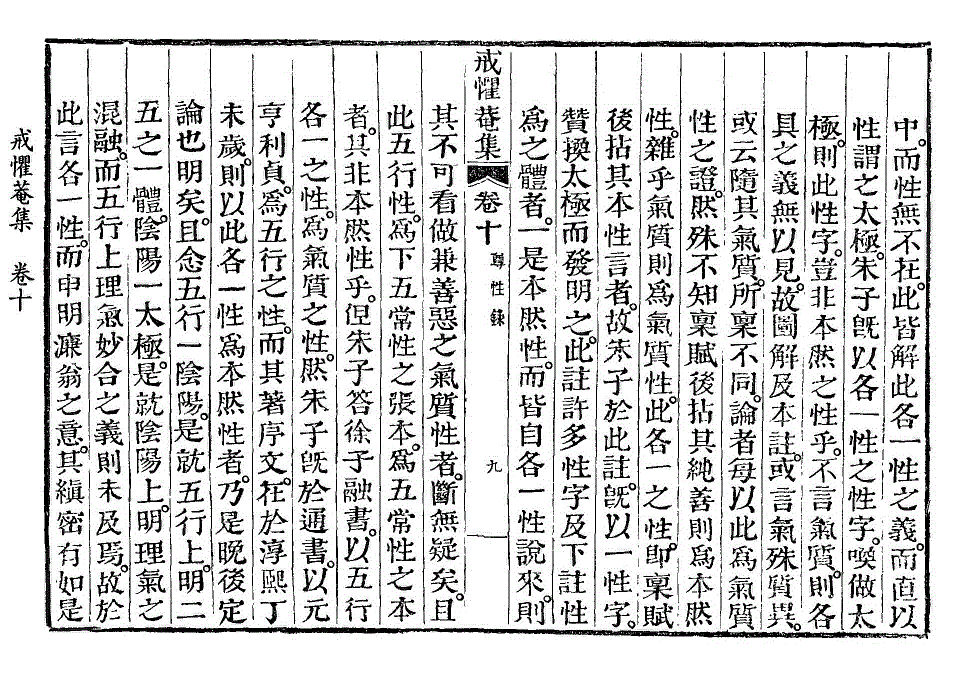 中。而性無不在。此皆解此各一性之義。而直以
性謂之太極。朱子旣以各一性之性字。喚做太
極。則此性字。豈非本然之性乎。不言氣質。則各
具之義無以見。故圖解及本註。或言氣殊質異。
或云隨其氣質。所稟不同。論者每以此爲氣質
性之證。然殊不知稟賦後拈其純善則爲本然
性。雜乎氣質則爲氣質性。此各一之性。卽稟賦
後拈其本性言者。故朱子於此註。旣以一性字。
贊換太極而發明之。此註許多性字及下註性
爲之體者。一是本然性。而皆自各一性說來。則
戒懼菴集 卷十 尊性錄 九
其不可看做兼善惡之氣質性者。斷無疑矣。且
此五行性。爲下五常性之張本。爲五常性之本
者。其非本然性乎。但朱子答徐子融書。以五行
各一之性。爲氣質之性。然朱子旣於通書。以元
亨利貞。爲五行之性。而其著序文。在於淳熙丁
未歲。則以此各一性爲本然性者。乃是晩後定
論也明矣。且念五行一陰陽。是就五行上。明二
五之一體。陰陽一太極。是就陰陽上。明理氣之
混融。而五行上理氣妙合之義則未及焉。故於
此言各一性。而申明濂翁之意。其縝密有如是
戒懼菴集 卷十